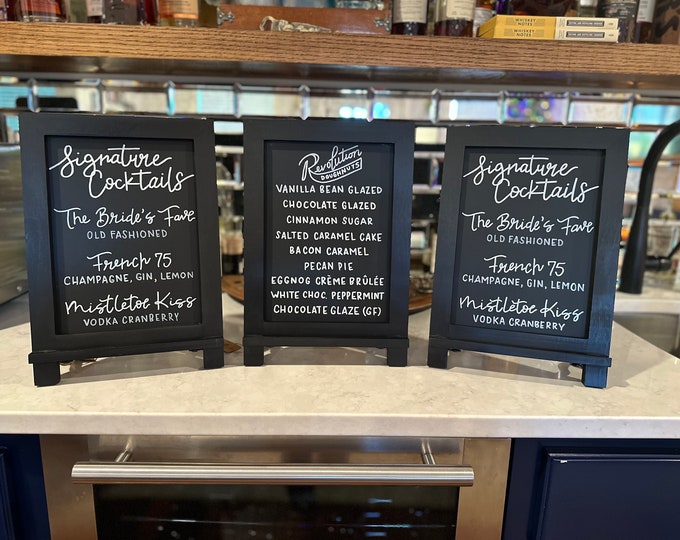 WHISKEY NOTES
WHISKEY NOTES
Signature
Cocktails
The Bride's Fave
OLD FASHIONED
French 75
CHAMPAGNE, GIN, LEMON
Mistletoe Kiss
VODKA CRANBERRY
Revolution
DOUGHNUTS
VANILLA BEAN GLAZED
CHOCOLATE GLAZED
CINNAMON SUGAR
SALTED CARAMEL CAKE
BACON CARAMEL
PECAN PIE
EGGNOG CRÈME BRÛLÉE
WHITE CHOC. PEPPERMINT
CHOCOLATE GLAZE (GF)
Signature
Cocktails
The Bride's Fave
OLD FASHIONED
French 75
CHAMPAGNE, GIN, LEMON
Mistletoe Kiss
VODKA CRANBERRY